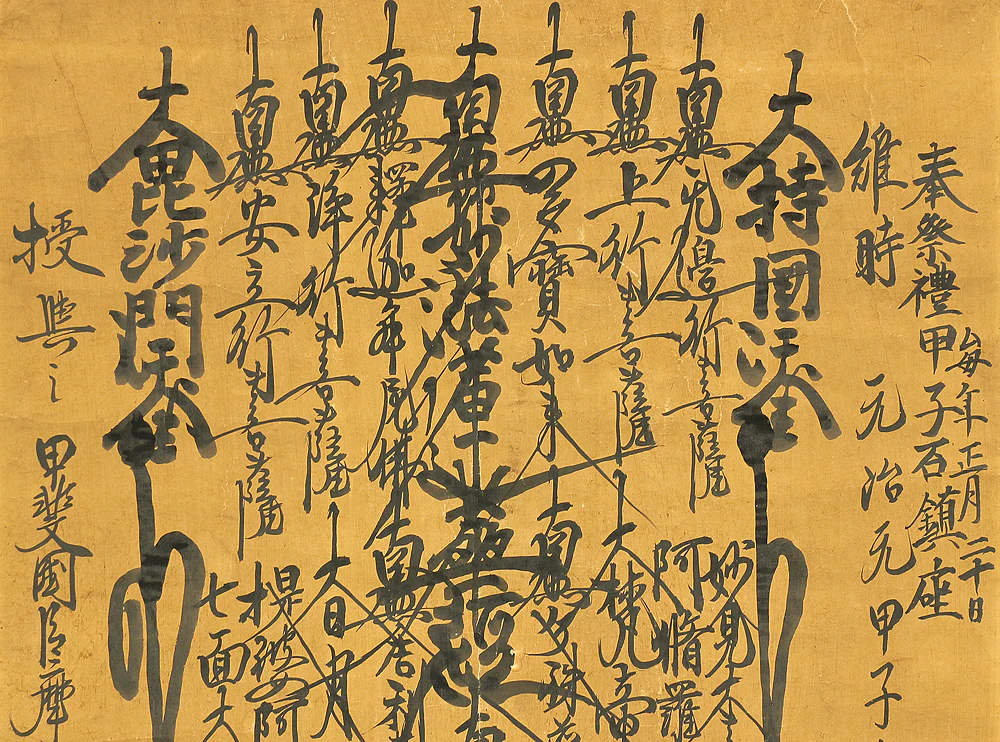 奉祭禮甲子石鎮座
毎年正月二十日
維時 元治元甲子
大持国天王
南無无邊行菩薩
妙見
南無上行菩薩
阿脩羅
南無多寶如来
大梵
南無文殊
南無妙法蓮華
南無釋迦牟尼佛
南無舎利
南無浄行菩薩
大日月
南無安立行菩薩
提婆阿
七面大
大毘沙門天王
授與之 甲斐国